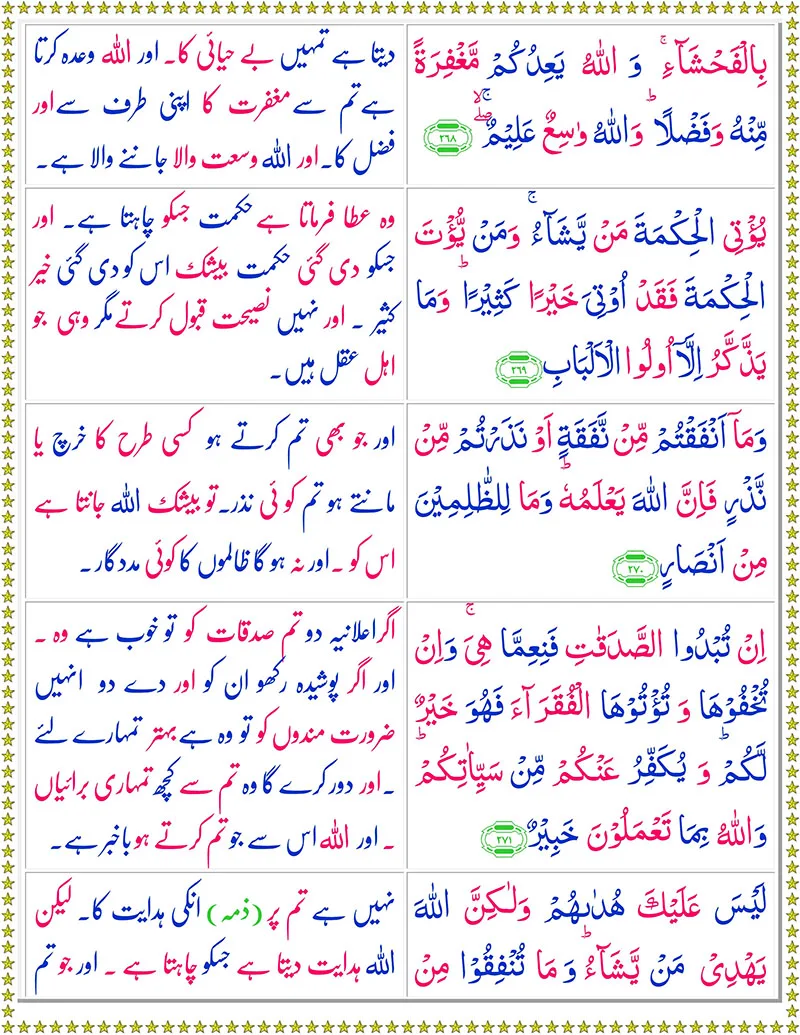 بِالْفَحْشَآءِ ۚ وَ اللّٰهُ یَعِدُكُمْ مَّغْفِرَةً
مِّنْهُ وَفَضْلًا ؕ وَاللّٰهُ وٰسِعٌ عَلِیْمٌ ۖۚۙ ۲۶۸
دیتا ہے تمہیں بے حیائی کا۔ اور اللہ وعدہ کرتا
ہے تم سے مغفرت کا اپنی طرف سے اور
فضل کا۔ اور اللہ وسعت والا جاننے والا ہے۔
یُؤْتِی الْحِكْمَةَ مَنْ یَّشَآءُ ۚ وَمَنْ یُّؤْتَ
الْحِكْمَةَ فَقَدْ اُوْتِیَ خَیْرًا كَثِیْرًا ؕ وَمَا
یَذَّكَّرُ اِلَّاۤ اُولُوا الْاَلْبَابِ ۲۶۹
وہ عطا فرماتا ہے حکمت جسکو چاہتا ہے۔ اور
جسکو دی گئی حکمت بیشک اس کو دی گئی خیر
کثیر ۔ اور نہیں نصیحت قبول کرتے مگر وہی جو
اہل عقل ہیں۔
وَمَاۤ اَنْفَقْتُمْ مِّنْ نَّفَقَةٍ اَوْ نَذَرْتُمْ مِّنْ
نَّذْرٍ فَاِنَّ اللّٰهَ یَعْلَمُهٗ ؕ وَمَا لِلظّٰلِمِیْنَ
مِنْ اَنْصَارٍ ۲۷۰
اور جو بھی تم کرتے ہو کسی طرح کا خرچ یا
مانتے ہو تم کوئی نذر۔ تو بیشک اللہ جانتا ہے
اس کو ۔ اور نہ ہو گا ظالموں کا کوئی مددگار۔
اِنْ تُبْدُوا الصَّدَقٰتِ فَنِعِمَّا هِیَ ۚ وَاِنْ
تُخْفُوْهَا وَ تُؤْتُوْهَا الْفُقَرَآءَ فَهُوَ خَیْرٌ
لَّكُمْ ؕ وَ یُكَفِّرُ عَنْكُمْ مِّنْ سَیِّاٰتِكُمْ ؕ
وَاللّٰهُ بِمَا تَعْمَلُوْنَ خَبِیْرٌ ۲۷۱
اگر اعلانیہ دو تم صدقات کو تو خوب ہے وہ ۔
اور اگر پوشیدہ رکھو ان کو اور دے دو انہیں
ضرورت مندوں کو تو وہ ہے بہتر تمہارے لئے
۔ اور دور کرے گا وہ تم سے کچھ تمہاری برائیاں
۔ اور اللہ اس سے جو تم کرتے ہو باخبر ہے۔
لَیْسَ عَلَیْكَ هُدٰىهُمْ وَلٰكِنَّ اللّٰهَ
یَهْدِیْ مَنْ یَّشَآءُ ؕ وَ مَا تُنْفِقُوْا مِنْ
نہیں ہے تم پر (ذمہ) انکی ہدایت کا۔ لیکن
اللہ ہدایت دیتا ہے جسکو چاہتا ہے ۔ اور جو تم